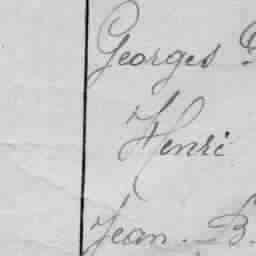 Georges
Henri
Jean. B.